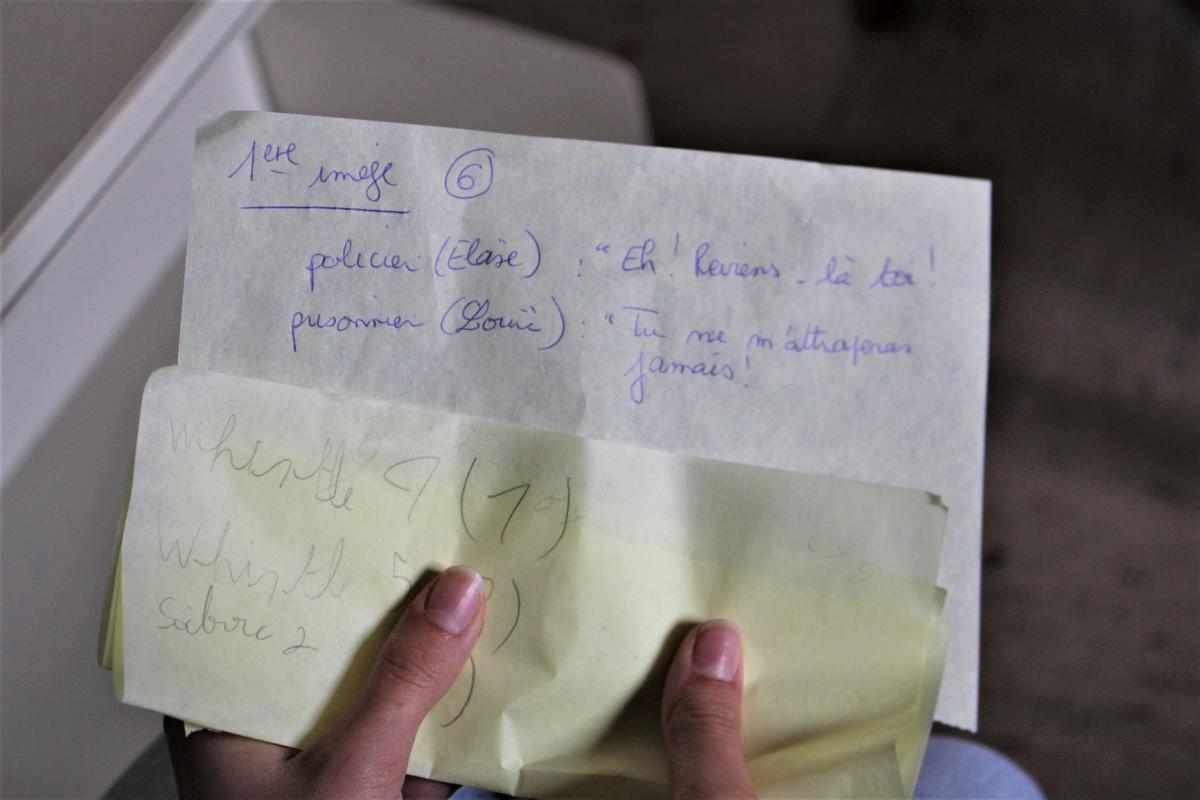 1ère image ⑥
policier (Elàse) : "Eh! Reviens-là toi!
prisonnier (Louïc) : "Tu ne m'attraperas
jamais!
Whistle
Whistle 5
sabre 2